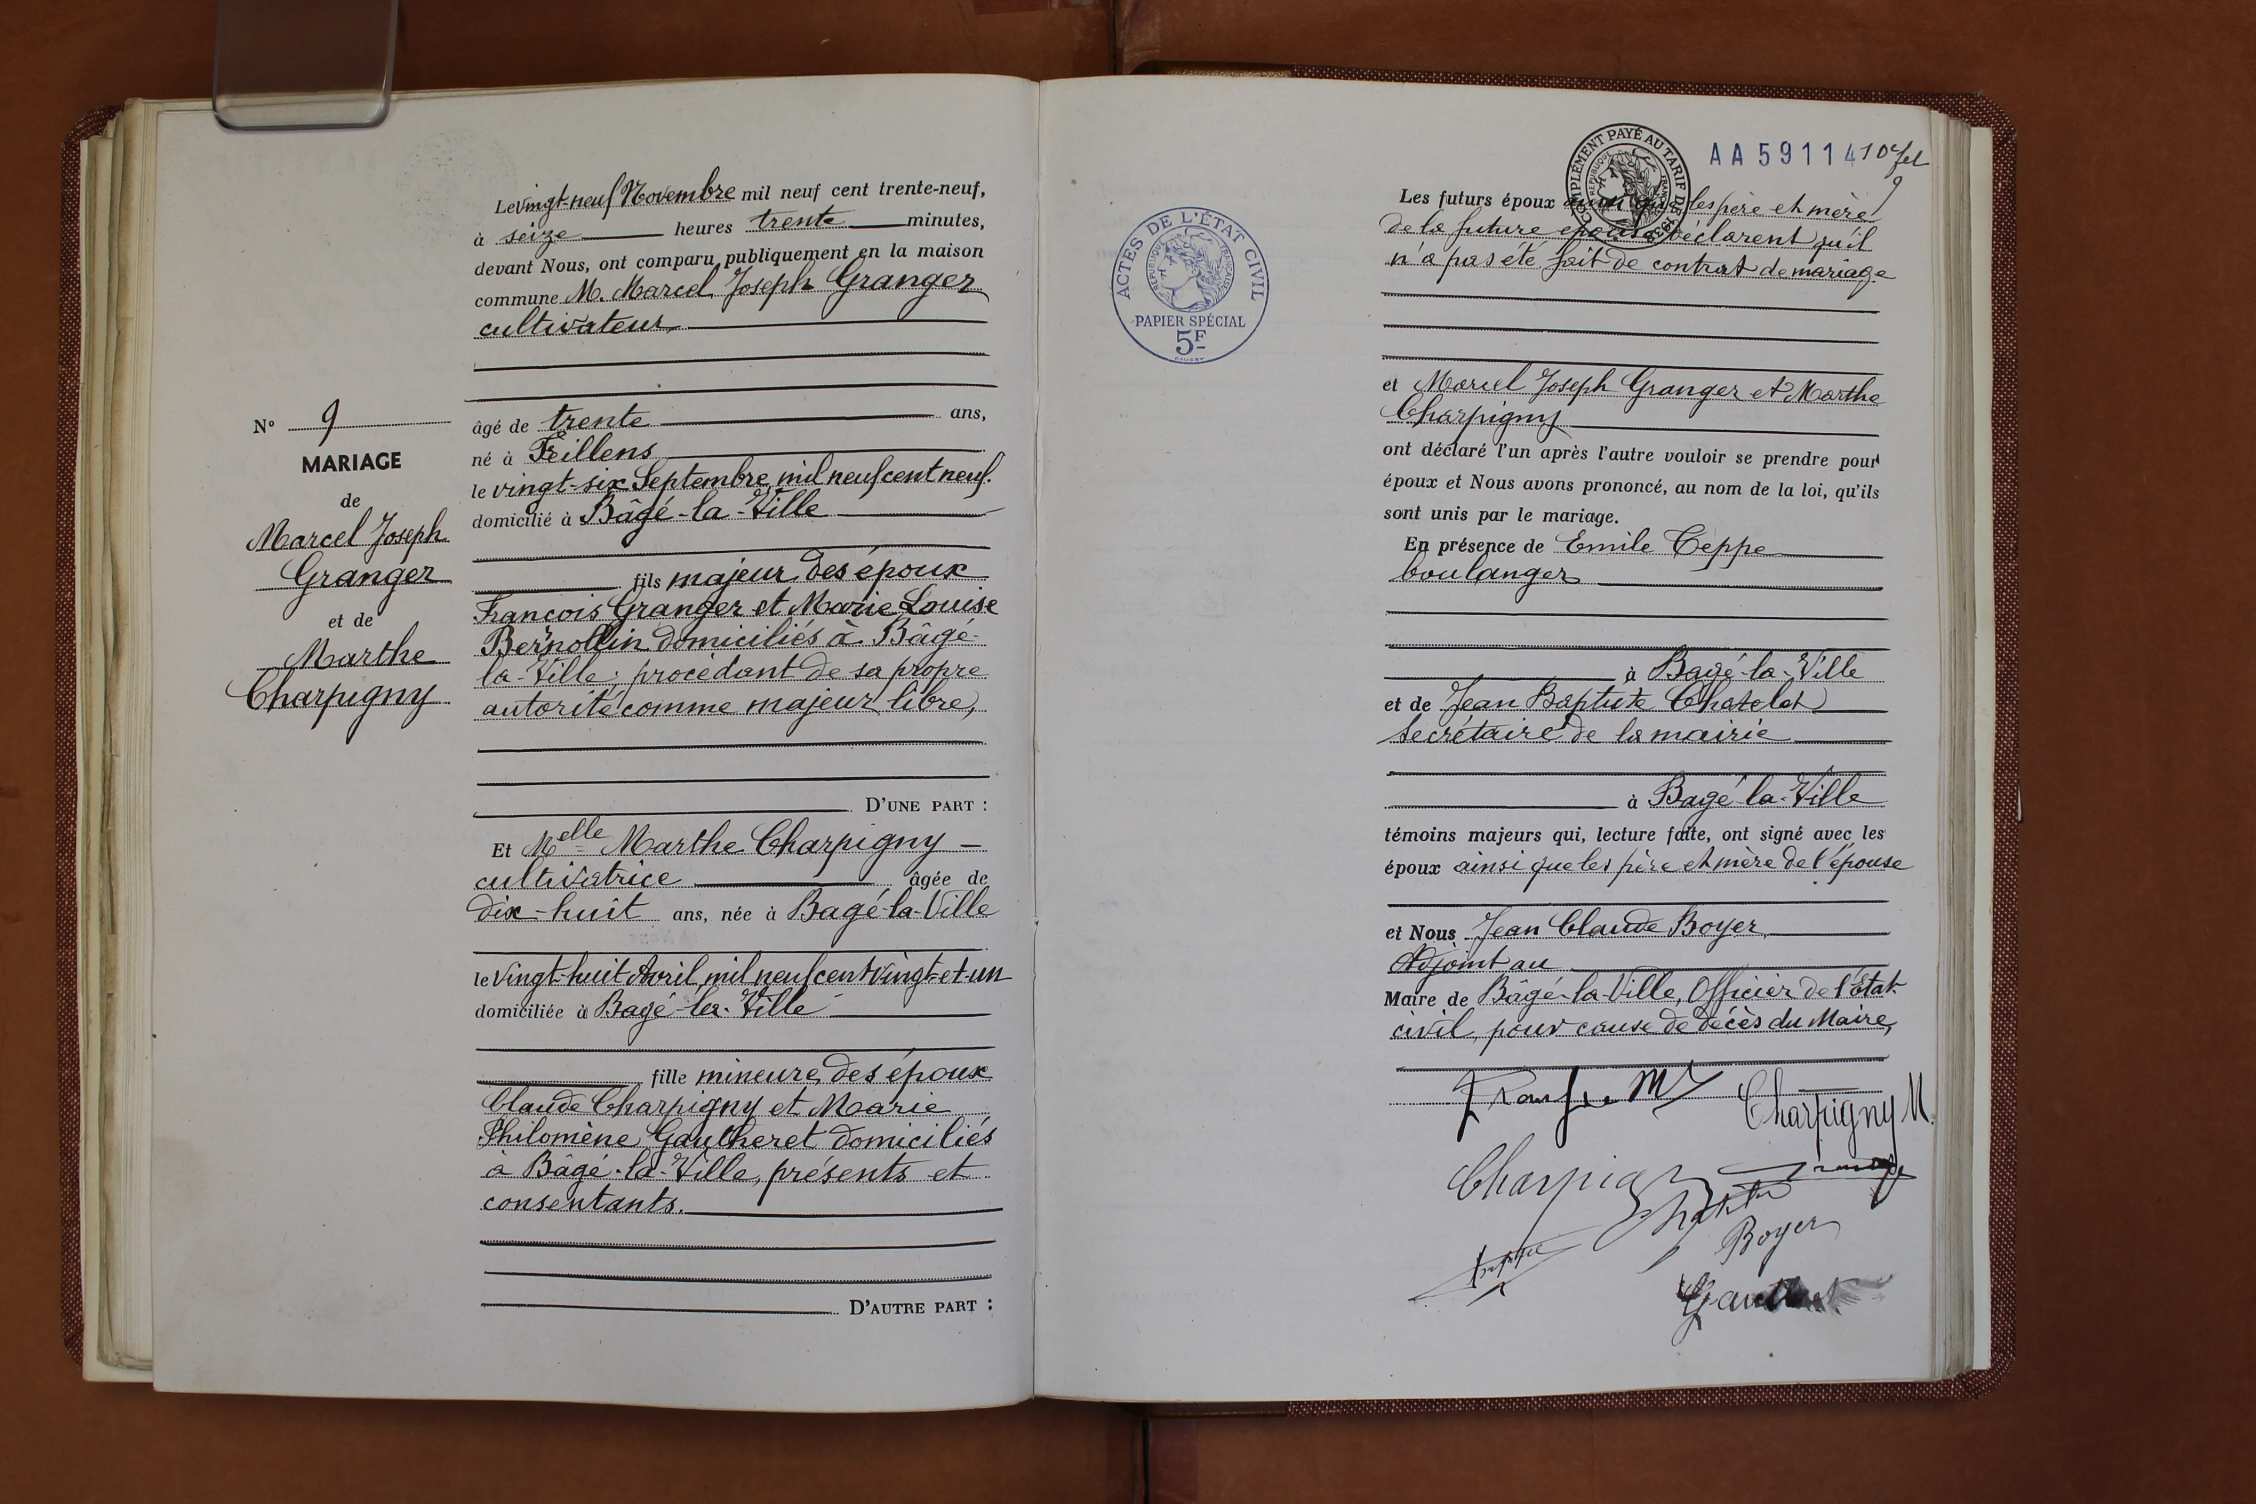 Le vingt-neuf Novembre mil neuf cent trente-neuf,
à seize heures trente minutes,
devant Nous, ont comparu publiquement en la maison
commune M. Marcel Joseph Granger
cultivateur
N° 9
MARIAGE
de
Marcel Joseph
Granger
et de
Marthe
Charpigny
âgé de trente ans,
né à Feillens
le vingt-six Septembre mil neuf cent neuf.
domicilié à Bâgé-la-Ville
fils majeur des époux
François Granger et Marie Louise
Bernollin domiciliés à Bâgé-
la-Ville; procédant de sa propre
autorité comme majeur libre,
D'UNE PART :
Et Melle Marthe Charpigny
cultivatrice âgée de
dix-huit ans, née à Bagé-la-Ville
le vingt-huit Avril mil neuf cent vingt-et-un
domiciliée à Bagé-la-Ville
fille mineure des époux
Claude Charpigny et Marie
Philomène Gautheret domiciliés
à Bâgé-la-Ville, présents et
consentants.
D'AUTRE PART :
ACTES DE L'ÉTAT CIVIL
RÉPUBLIQUE FRANÇAISE
PAPIER SPÉCIAL
5F
COMPLÉMENT PAYÉ AU TARIF DE 1938
AA 59114
9
Les futurs époux ainsi que les père et mère
de la future épouse déclarent qu'il
n'a pas été fait de contrat de mariage
et Marcel Joseph Granger et Marthe
Charpigny
ont déclaré l'un après l'autre vouloir se prendre pour
époux et Nous avons prononcé, au nom de la loi, qu'ils
sont unis par le mariage.
En présence de Emile Teppe
boulanger
à Bagé-la-Ville
et de Jean Baptiste Chatelet
secrétaire de la mairie
à Bagé-la-Ville
témoins majeurs qui, lecture faite, ont signé avec les
époux ainsi que les père et mère de l'épouse
et Nous Jean Claude Boyer
Adjoint au
Maire de Bâgé-la-Ville, Officier de l'État-
civil, pour cause de décès du Maire,
Charpigny M.
Charpigny
Boyer